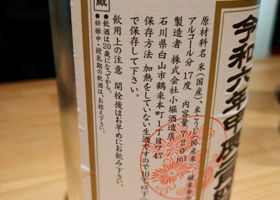 令和六年甲辰
原材料名 米(国産)、米こうじ(国産米)
アルコール分 17度 内容量 720ml
製造者 株式会社 小堀酒造店
石川県白山市鶴来本町1丁目ワ47
保存方法 加熱をしていない生酒ですので10℃以下
で保存して下さい。
飲用上の注意 開栓後はお早めにお飲み下さい。
●飲酒は20歳になってから。
妊娠中・授乳期の飲酒は、お控え下さい。
蔵